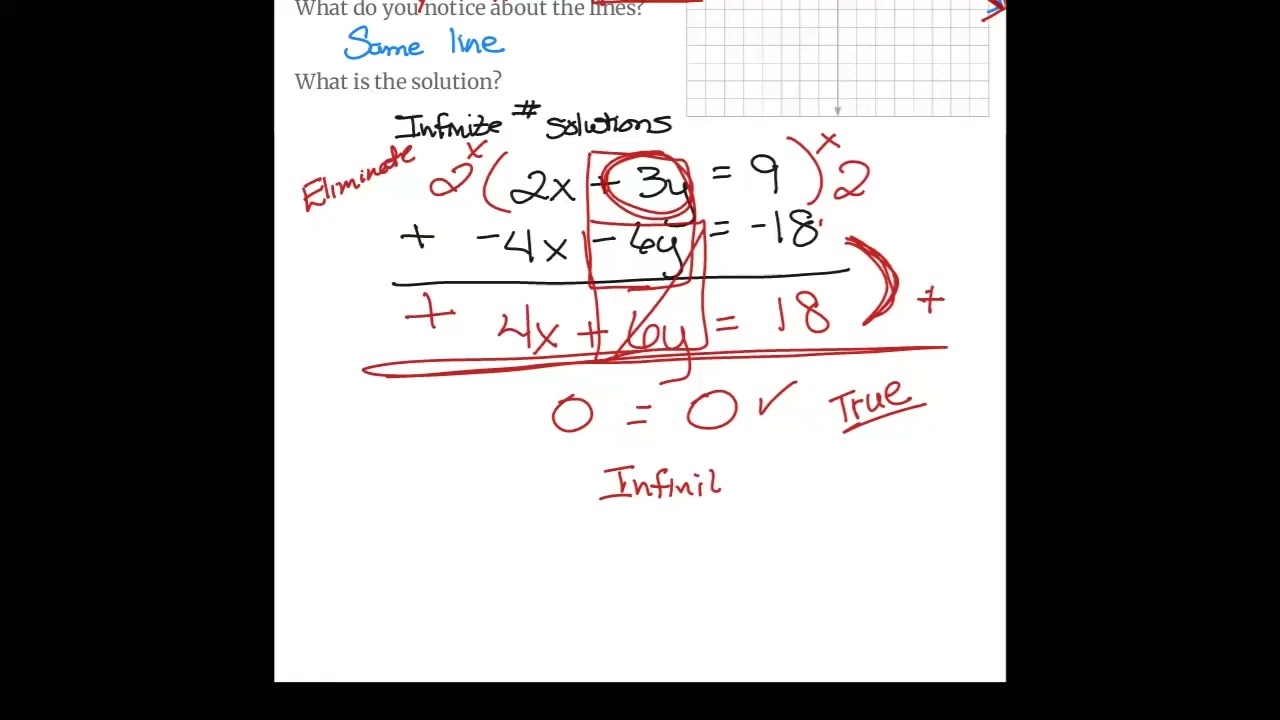 What do you notice about the lines?
Same line
What is the solution?
Infinite # solutions
Eliminate 2 x ( 2x + 3y = 9 ) x 2
+ -4x - 6y = -18
+ 4x + 6y = 18 ) +
0 = 0 ✓ True
Infinit